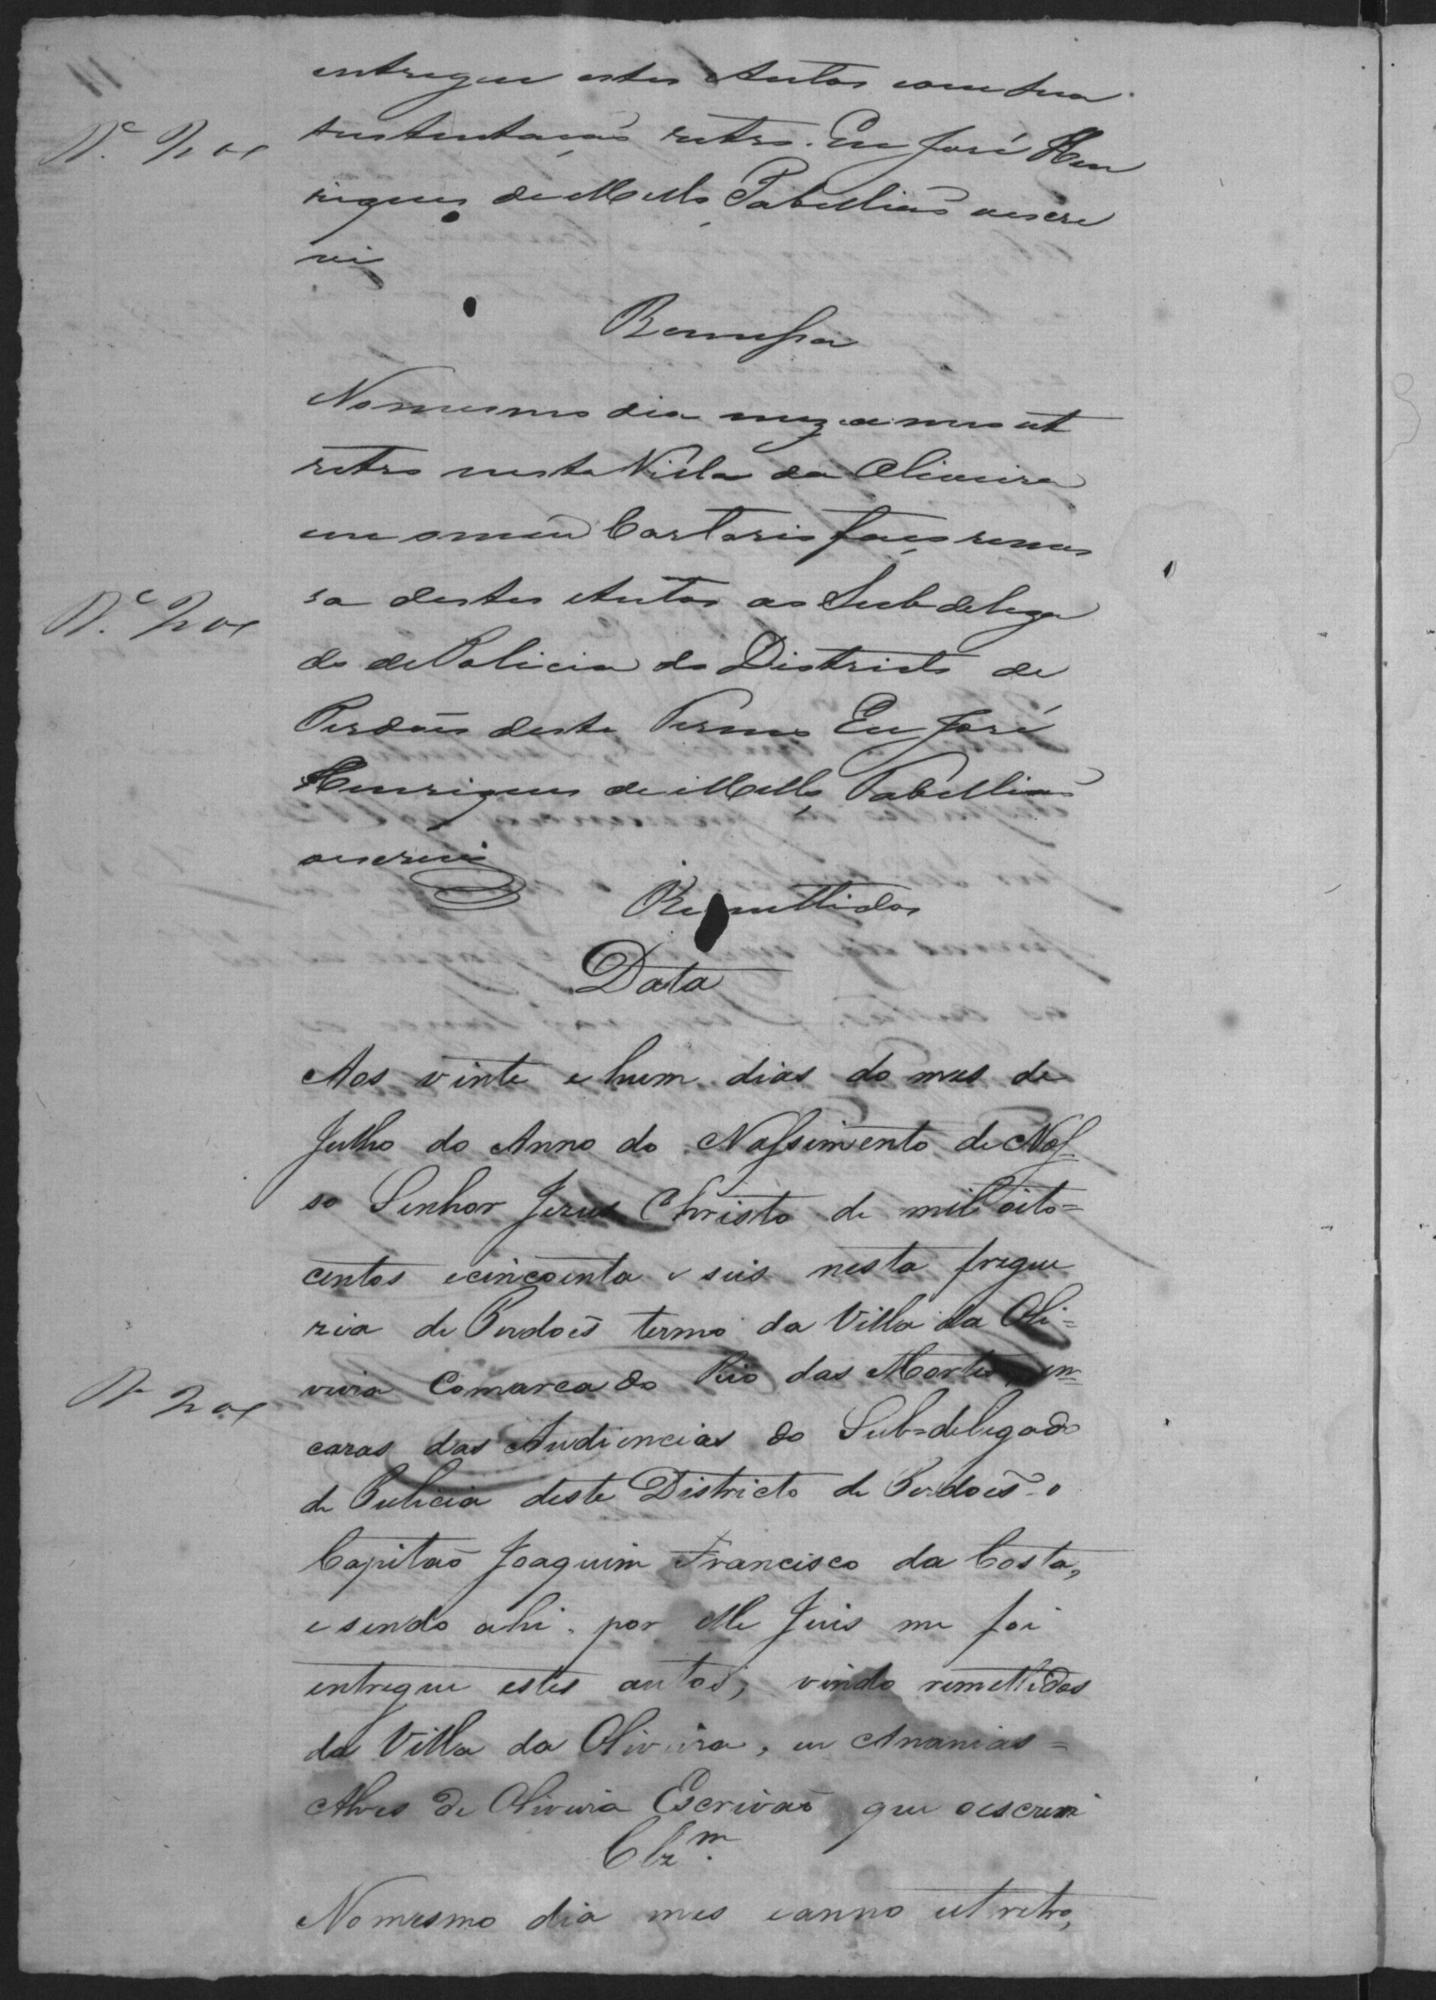 entregue estes Autos com sua
sustentação retro. Eu José Hen
riques de Mello, Tabellião o escre
vi
Remessa
No mesmo dia mez e anno ut
retro nesta Villa da Oliveira
em o meu Cartorio faço remes
sa destes Autos ao Subdelega
do de Policia do Districto de
Perdões deste Termo Eu José
Henriques de Mello, Tabellião
o escrevi
Remettidos
Data
Aos vinte e hum dias do mes de
Julho do Anno do Nassimento de Nos
so Senhor Jesus Christo de mil oito=
centos e cincoenta e seis nesta fregue
zia de Perdoẽs termo da Villa da Oli=
veira Comarca do Rio das Mortes, em
caras das Audiencias do Sub=delegado
de Pulicia deste Districto de Perdoẽs o
Capitaõ Joaquim Francisco da Costa,
e sendo ahi por elle Juis me foi
entregue estes autos, vindo remettidos
da Villa da Oliveira, eu Ananias=
Alves de Oliveira Escrivaõ que o escrevi
Clz.m
No mesmo dia mes e anno ut retro,